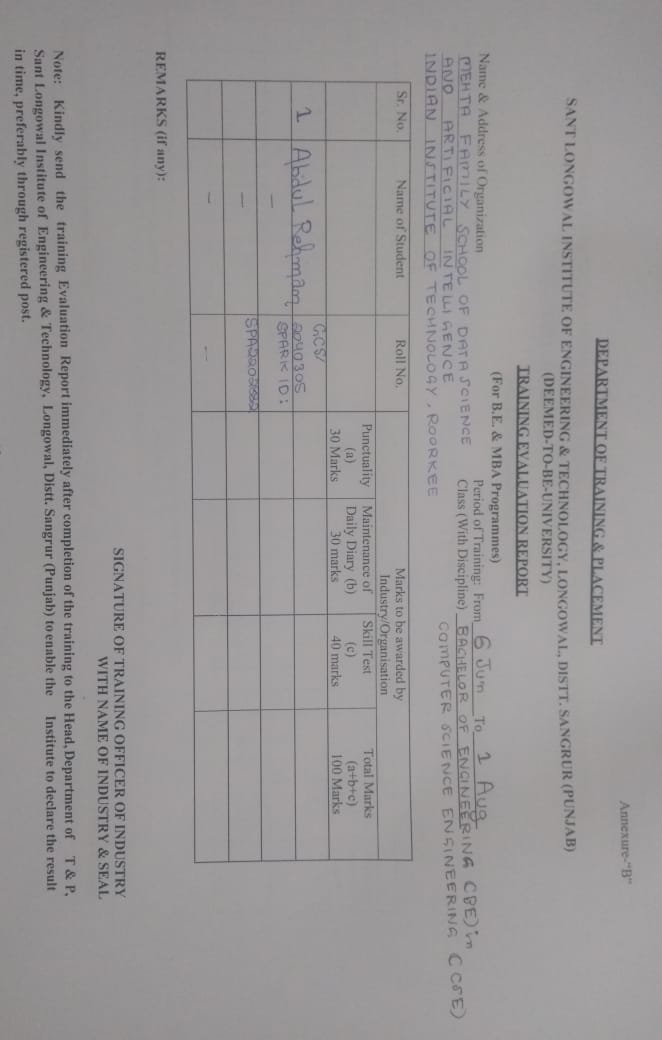 Annexure-"B"
DEPARTMENT OF TRAINING & PLACEMENT
SANT LONGOWAL INSTITUTE OF ENGINEERING & TECHNOLOGY, LONGOWAL, DISTT. SANGRUR (PUNJAB)
(DEEMED-TO-BE-UNIVERSITY)
TRAINING EVALUATION REPORT
(For B.E. & MBA Programmes)
Name & Address of Organization
MEHTA FAMILY SCHOOL OF DATA SCIENCE
AND ARTIFICIAL INTELLIGENCE
INDIAN INSTITUTE OF TECHNOLOGY, ROORKEE
Period of Training: From 6 Jun To 1 Aug
Class (With Discipline) BACHELOR OF ENGINEERING (BE) in
COMPUTER SCIENCE ENGINEERING (CSE)
Sr. No. Name of Student Roll No. Marks to be awarded by
Industry/Organisation
Punctuality Maintenance of Skill Test Total Marks
(a) Daily Diary (b) (c) (a+b+c)
30 Marks 30 marks 40 marks 100 Marks
GCS/
1 Abdul Rehman 2040305
— SPARK ID:
—
— —
REMARKS (if any):
SIGNATURE OF TRAINING OFFICER OF INDUSTRY
WITH NAME OF INDUSTRY & SEAL
Note: Kindly send the training Evaluation Report immediately after completion of the training to the Head, Department of T & P,
Sant Longowal Institute of Engineering & Technology, Longowal, Distt. Sangrur (Punjab) to enable the Institute to declare the result
in time, preferably through registered post.